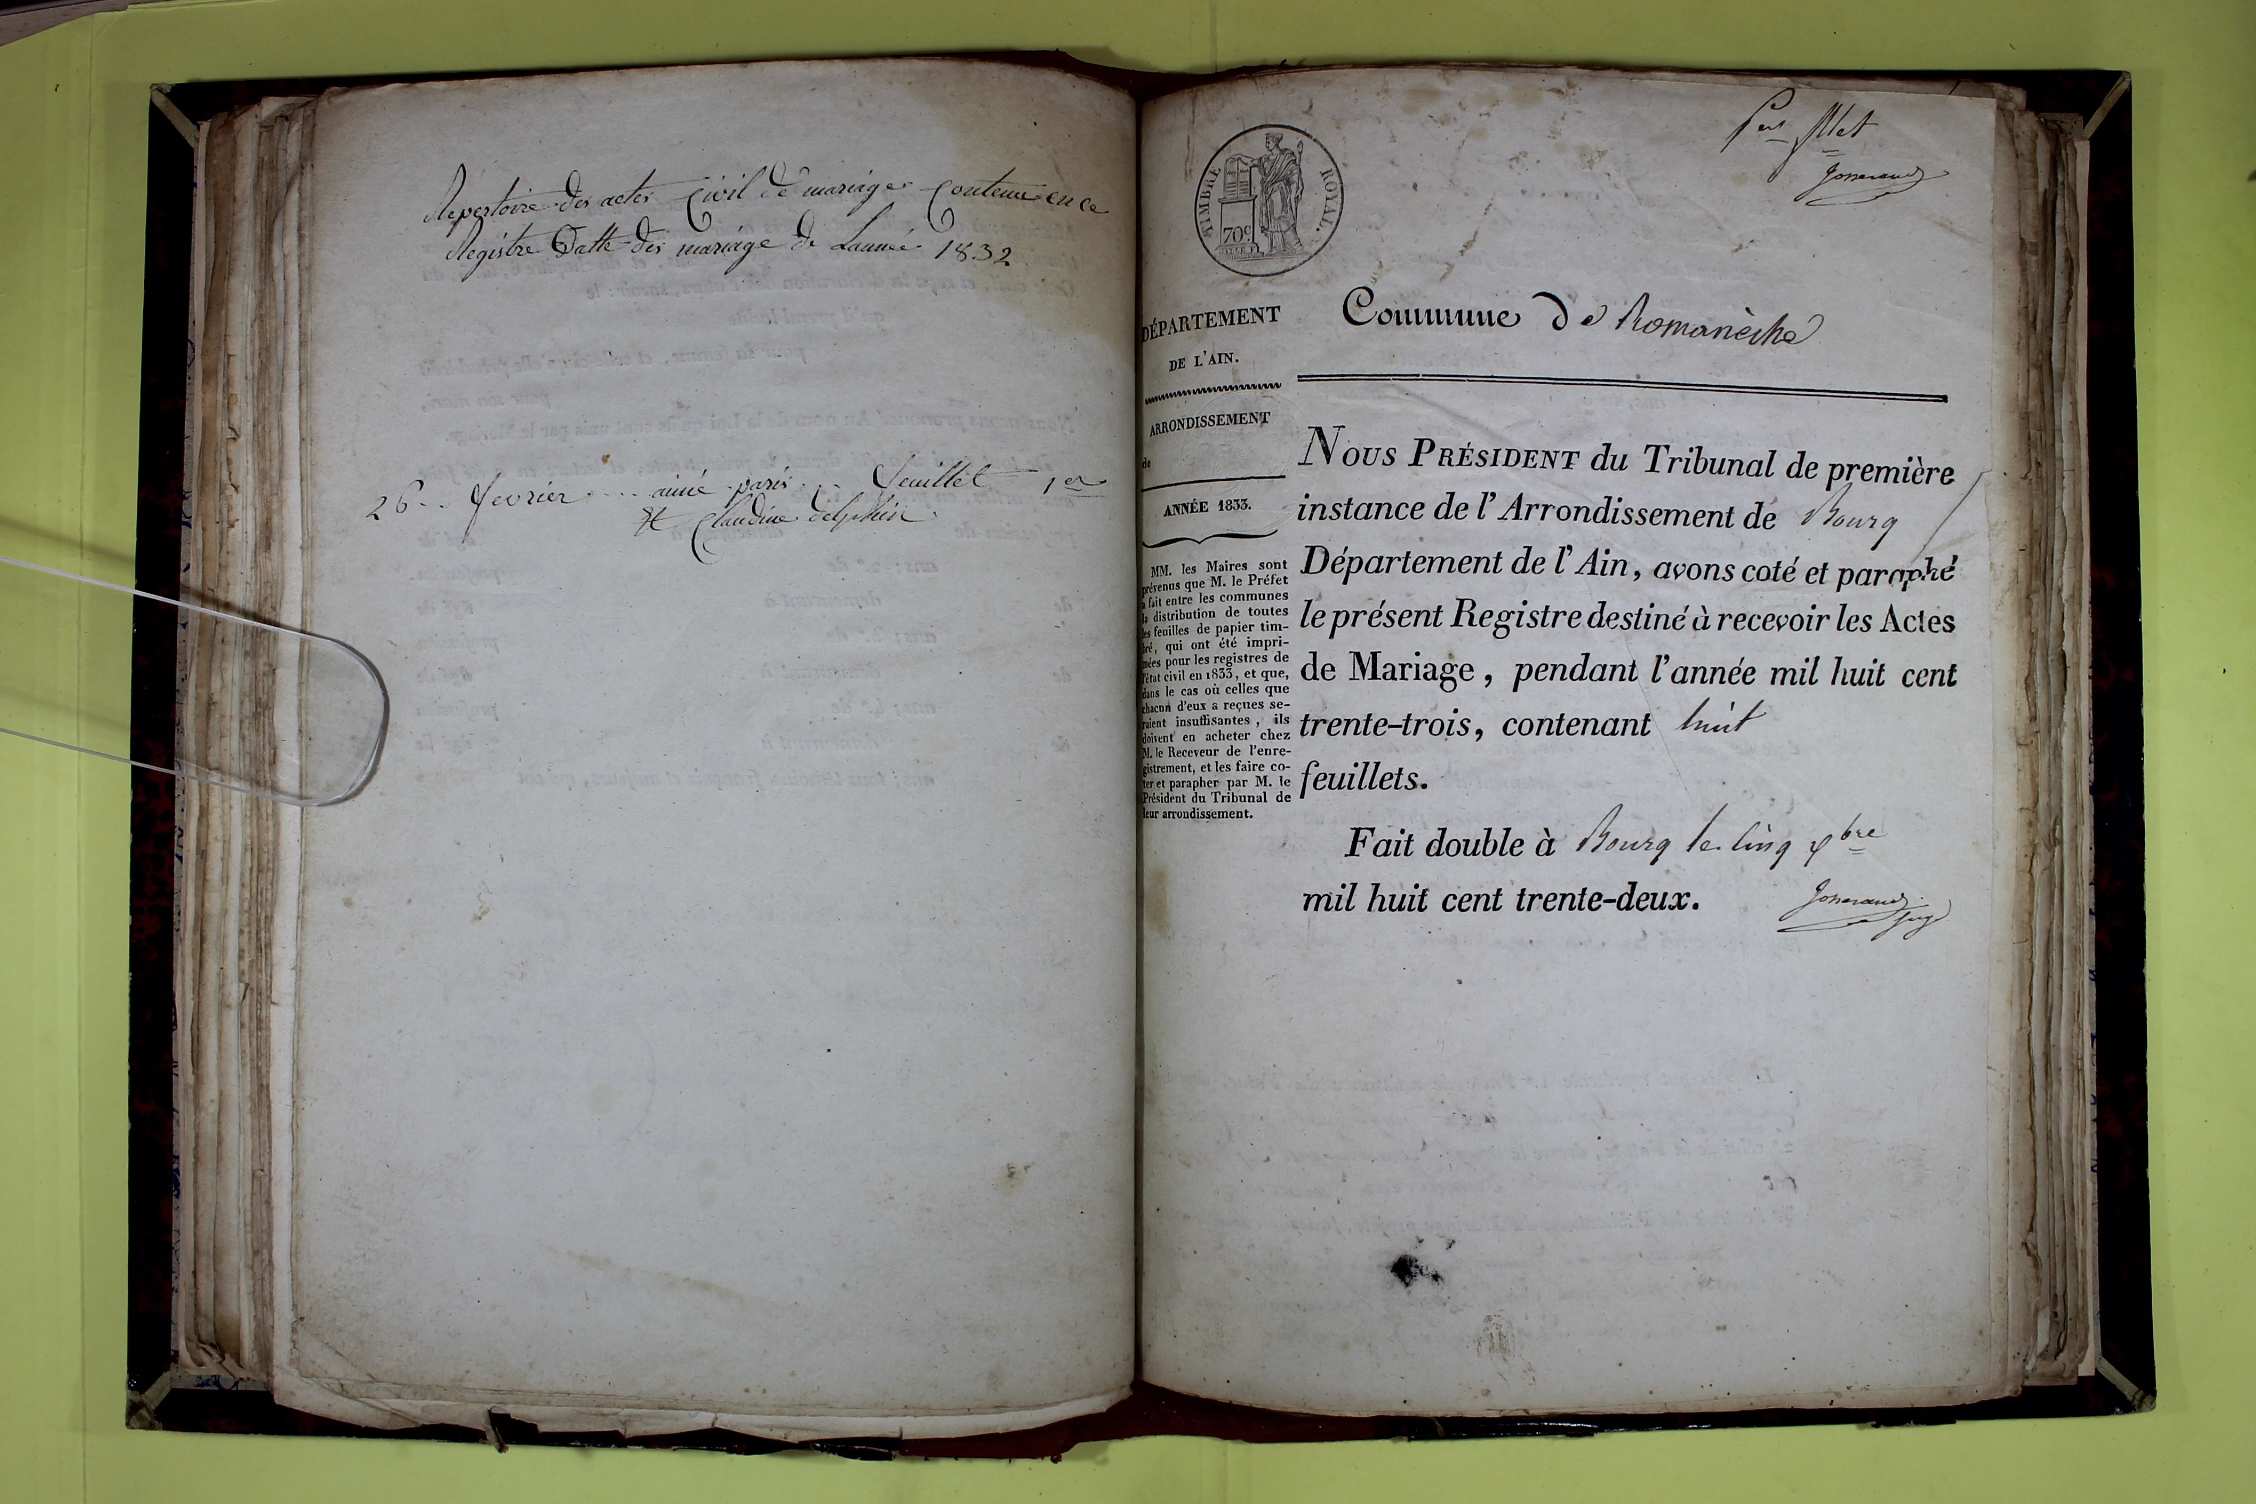 Repertoire des actes Civil de mariage Contenu en ce
Registre Datte des mariage de Lannée 1832
26 .. fevrier .... aimé paris ... feuillet 1er
et Claudine delphin
TIMBRE ROYAL.
70c
1er fllet
Josserand
DÉPARTEMENT
DE L'AIN.
ARRONDISSEMENT
de
ANNÉE 1833.
MM. les Maires sont
prévenus que M. le Préfet
a fait entre les communes
la distribution de toutes
les feuilles de papier tim-
bré, qui ont été impri-
mées pour les registres de
l'état civil en 1833, et que,
dans le cas où celles que
chacun d'eux a reçues se-
raient insuffisantes, ils
doivent en acheter chez
M. le Receveur de l'enre-
gistrement, et les faire co-
ter et parapher par M. le
Président du Tribunal de
leur arrondissement.
Commune de Romanèche
NOUS PRÉSIDENT du Tribunal de première
instance de l'Arrondissement de Bourg
Département de l'Ain, avons coté et paraphé
le présent Registre destiné à recevoir les Actes
de Mariage, pendant l'année mil huit cent
trente-trois, contenant huit
feuillets.
Fait double à Bourg le cinq xbre
mil huit cent trente-deux.
Josserand
juge